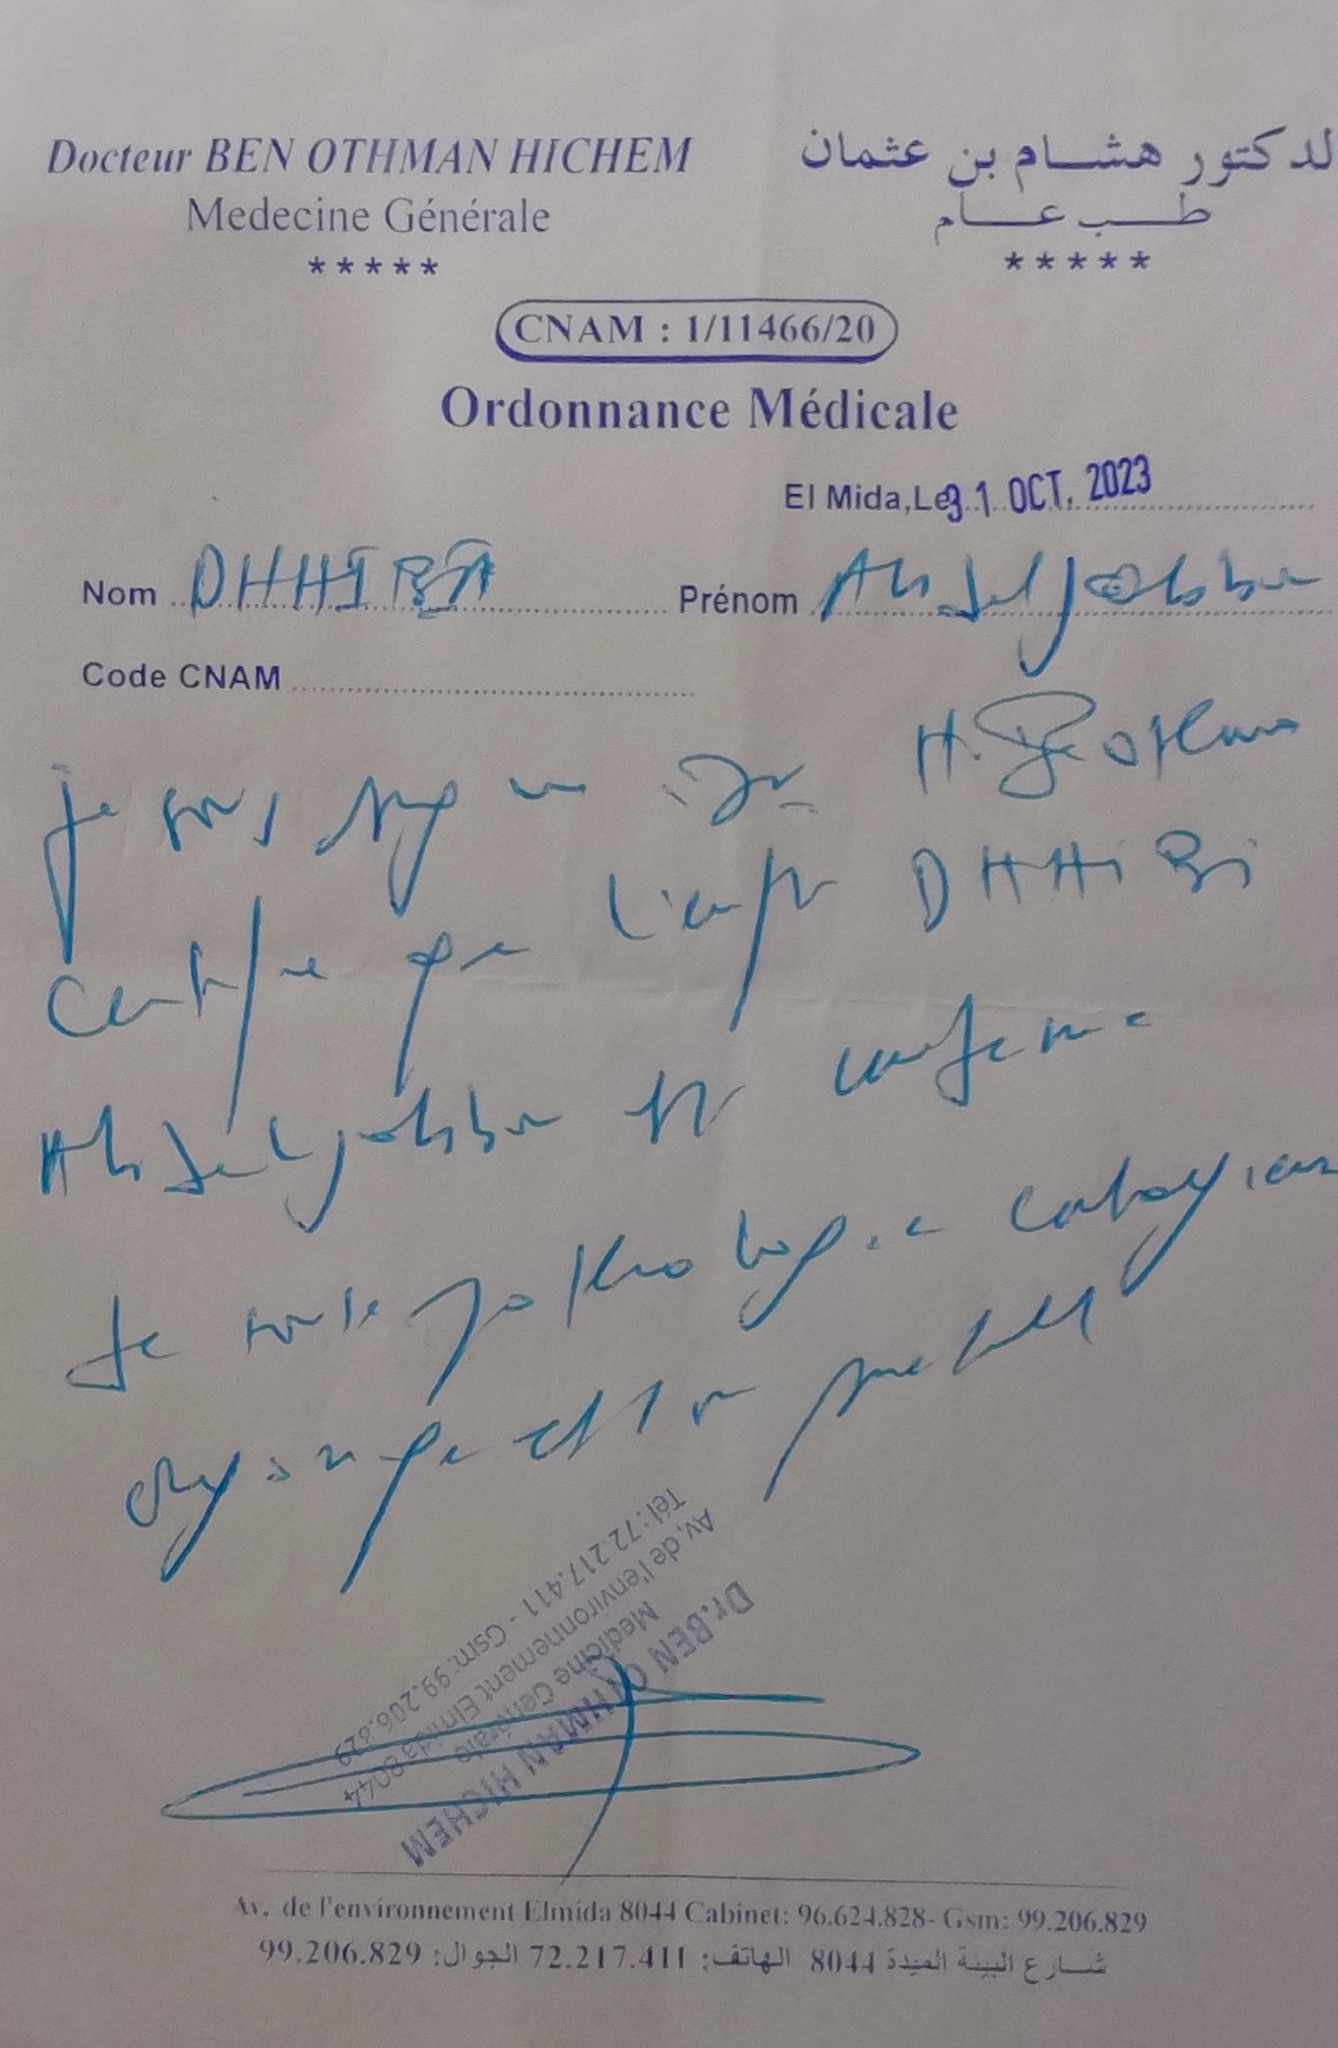 Docteur BEN OTHMAN HICHEM
Medecine Générale
*****
لدكتور هشام بن عثمان
طب عام
*****
CNAM : 1/11466/20
Ordonnance Médicale
El Mida,Le 31 OCT. 2023
Nom DHHIBI Prénom Abdeljabbar
Code CNAM
Je sous signé Dr H. Ben Othman
Certifie que l'enfant DHHIBI
Abdeljabbar est indemne
de toute pathologie contagieuse
Dr.BEN OTHMAN HICHEM
Medicine Générale
Av. de l'environnement Elmida 8044
Tél:72.217.411 - Gsm: 99.206.829
Av. de l'environnement Elmida 8044 Cabinet: 96.624.828- Gsm: 99.206.829
شارع البيئة الميدة 8044 الهاتف: 72.217.411 الجوال: 99.206.829